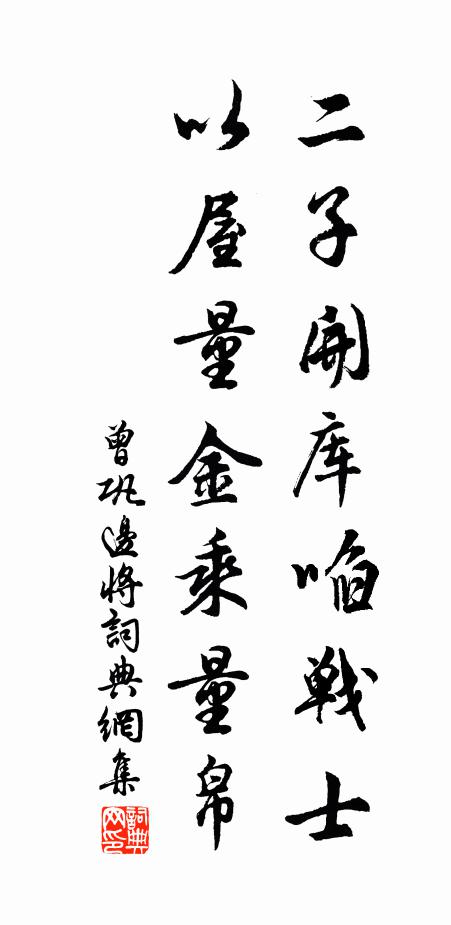 二子開库啗戦士
以屋量金乘量帛
曾巩邊將詞典網集
詞典网印